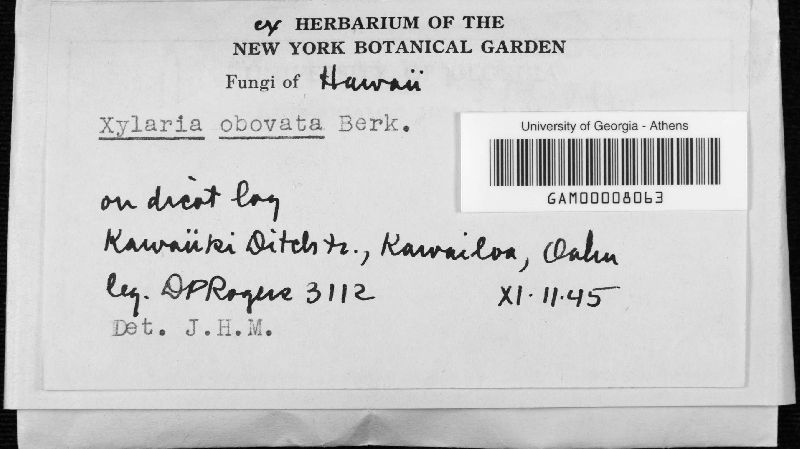 ex HERBARIUM OF THE
NEW YORK BOTANICAL GARDEN
Fungi of Hawaii
Xylaria obovata Berk.
University of Georgia - Athens
GAM00008063
on dicot log
Kawaiiki Ditch tr., Kawailoa, Oahu
leg. DPRogers 3112 XI·11·45
Det. J.H.M.